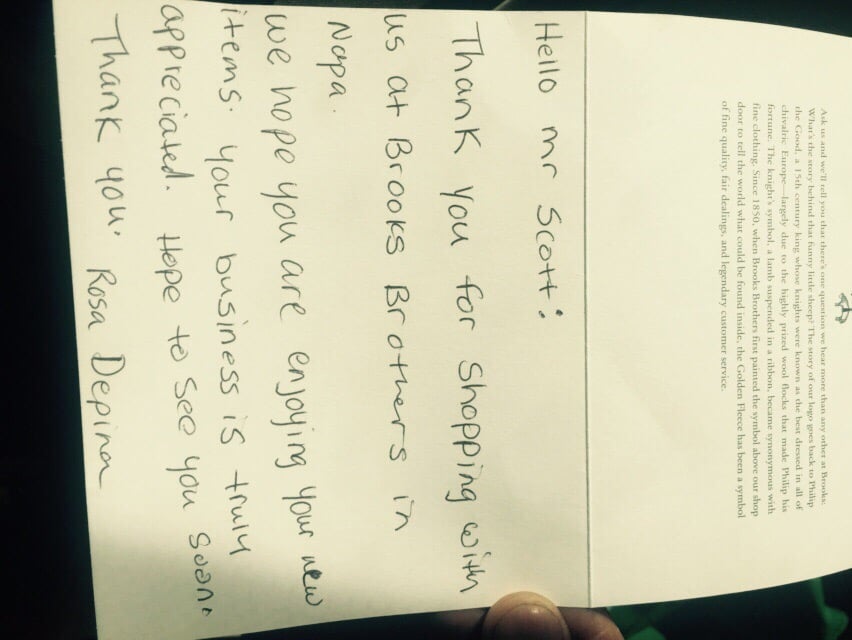 Ask us and we'll tell you that there's one question we hear more than any other at Brooks:
What's the story behind that funny little sheep? The story of our logo goes back to Philip
the Good, a 15th century king whose knights were known as the best dressed in all of
chivalric Europe—largely due to the highly prized wool flocks that made Philip his
fortune. The knight's symbol, a lamb suspended in a ribbon, became synonymous with
fine clothing. Since 1850, when Brooks Brothers first painted the symbol above our shop
door to tell the world what could be found inside, the Golden Fleece has been a symbol
of fine quality, fair dealings, and legendary customer service.
Hello mr Scott:
Thank you for shopping with
us at Brooks Brothers in
Napa.
we hope you are enjoying your new
items. your business is truly
appreciated. Hope to see you soon.
Thank you. Rosa Depina